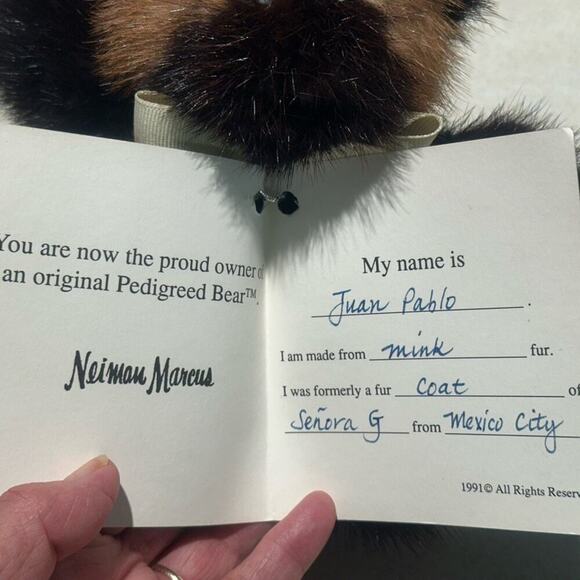 You are now the proud owner
an original Pedigreed Bear™.
Neiman Marcus
My name is
Juan Pablo.
I am made from mink fur.
I was formerly a fur coat of
Señora G from Mexico City
1991© All Rights